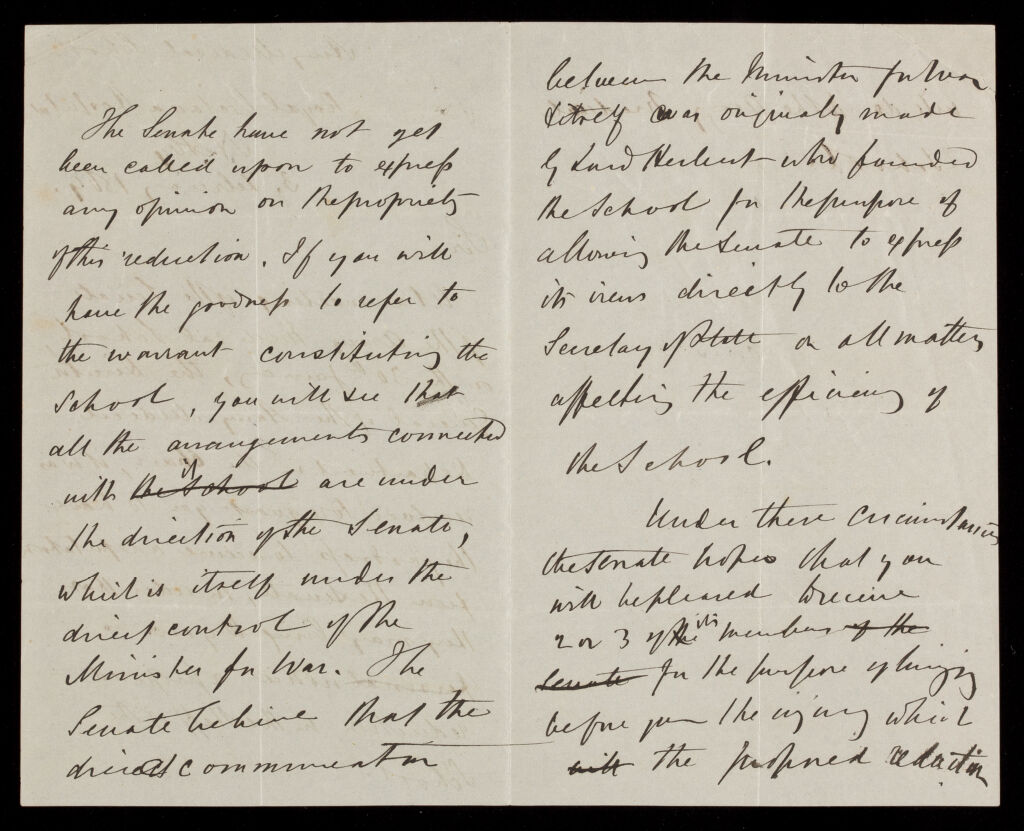 The Senate have not yet
been called upon to express
any opinion on the propriety
of this reduction. If you will
have the goodness to refer to
the warrant constituting the
School, you will see that
all the arrangements connected
with the School it are under
the direction of the Senate,
which is itself under the
direct control of the
Minister for War. The
Senate believe that the
direct communication
between the Minister for War
& itself was originally made
by Lord Herbert who founded
the School for the purpose of
allowing the Senate to express
its views directly to the
Secretary of State on all matters
affecting the efficiency of
the School.
Under these circumstances
the Senate hopes that you
will be pleased to receive
2 or 3 of the its members of the
Senate for the purpose of bringing
before you the injury which
will the proposed reduction